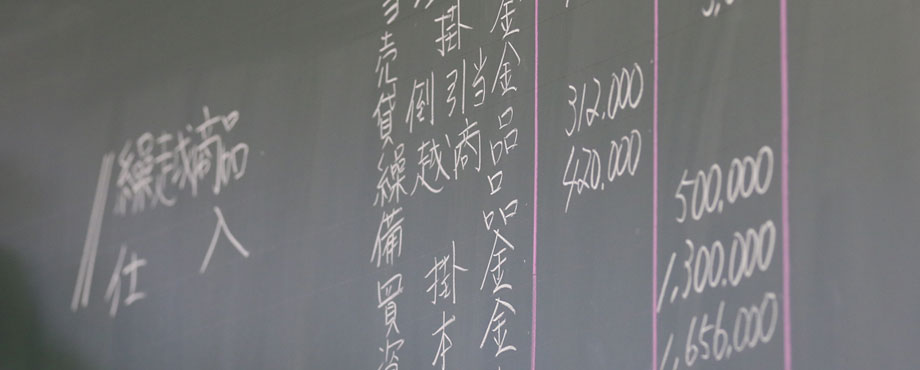 売掛金
貸倒引当金
繰越商品 312,000
備品 420,000
買掛金 500,000
資本金 1,300,000
1,656,000
繰越商品
仕入